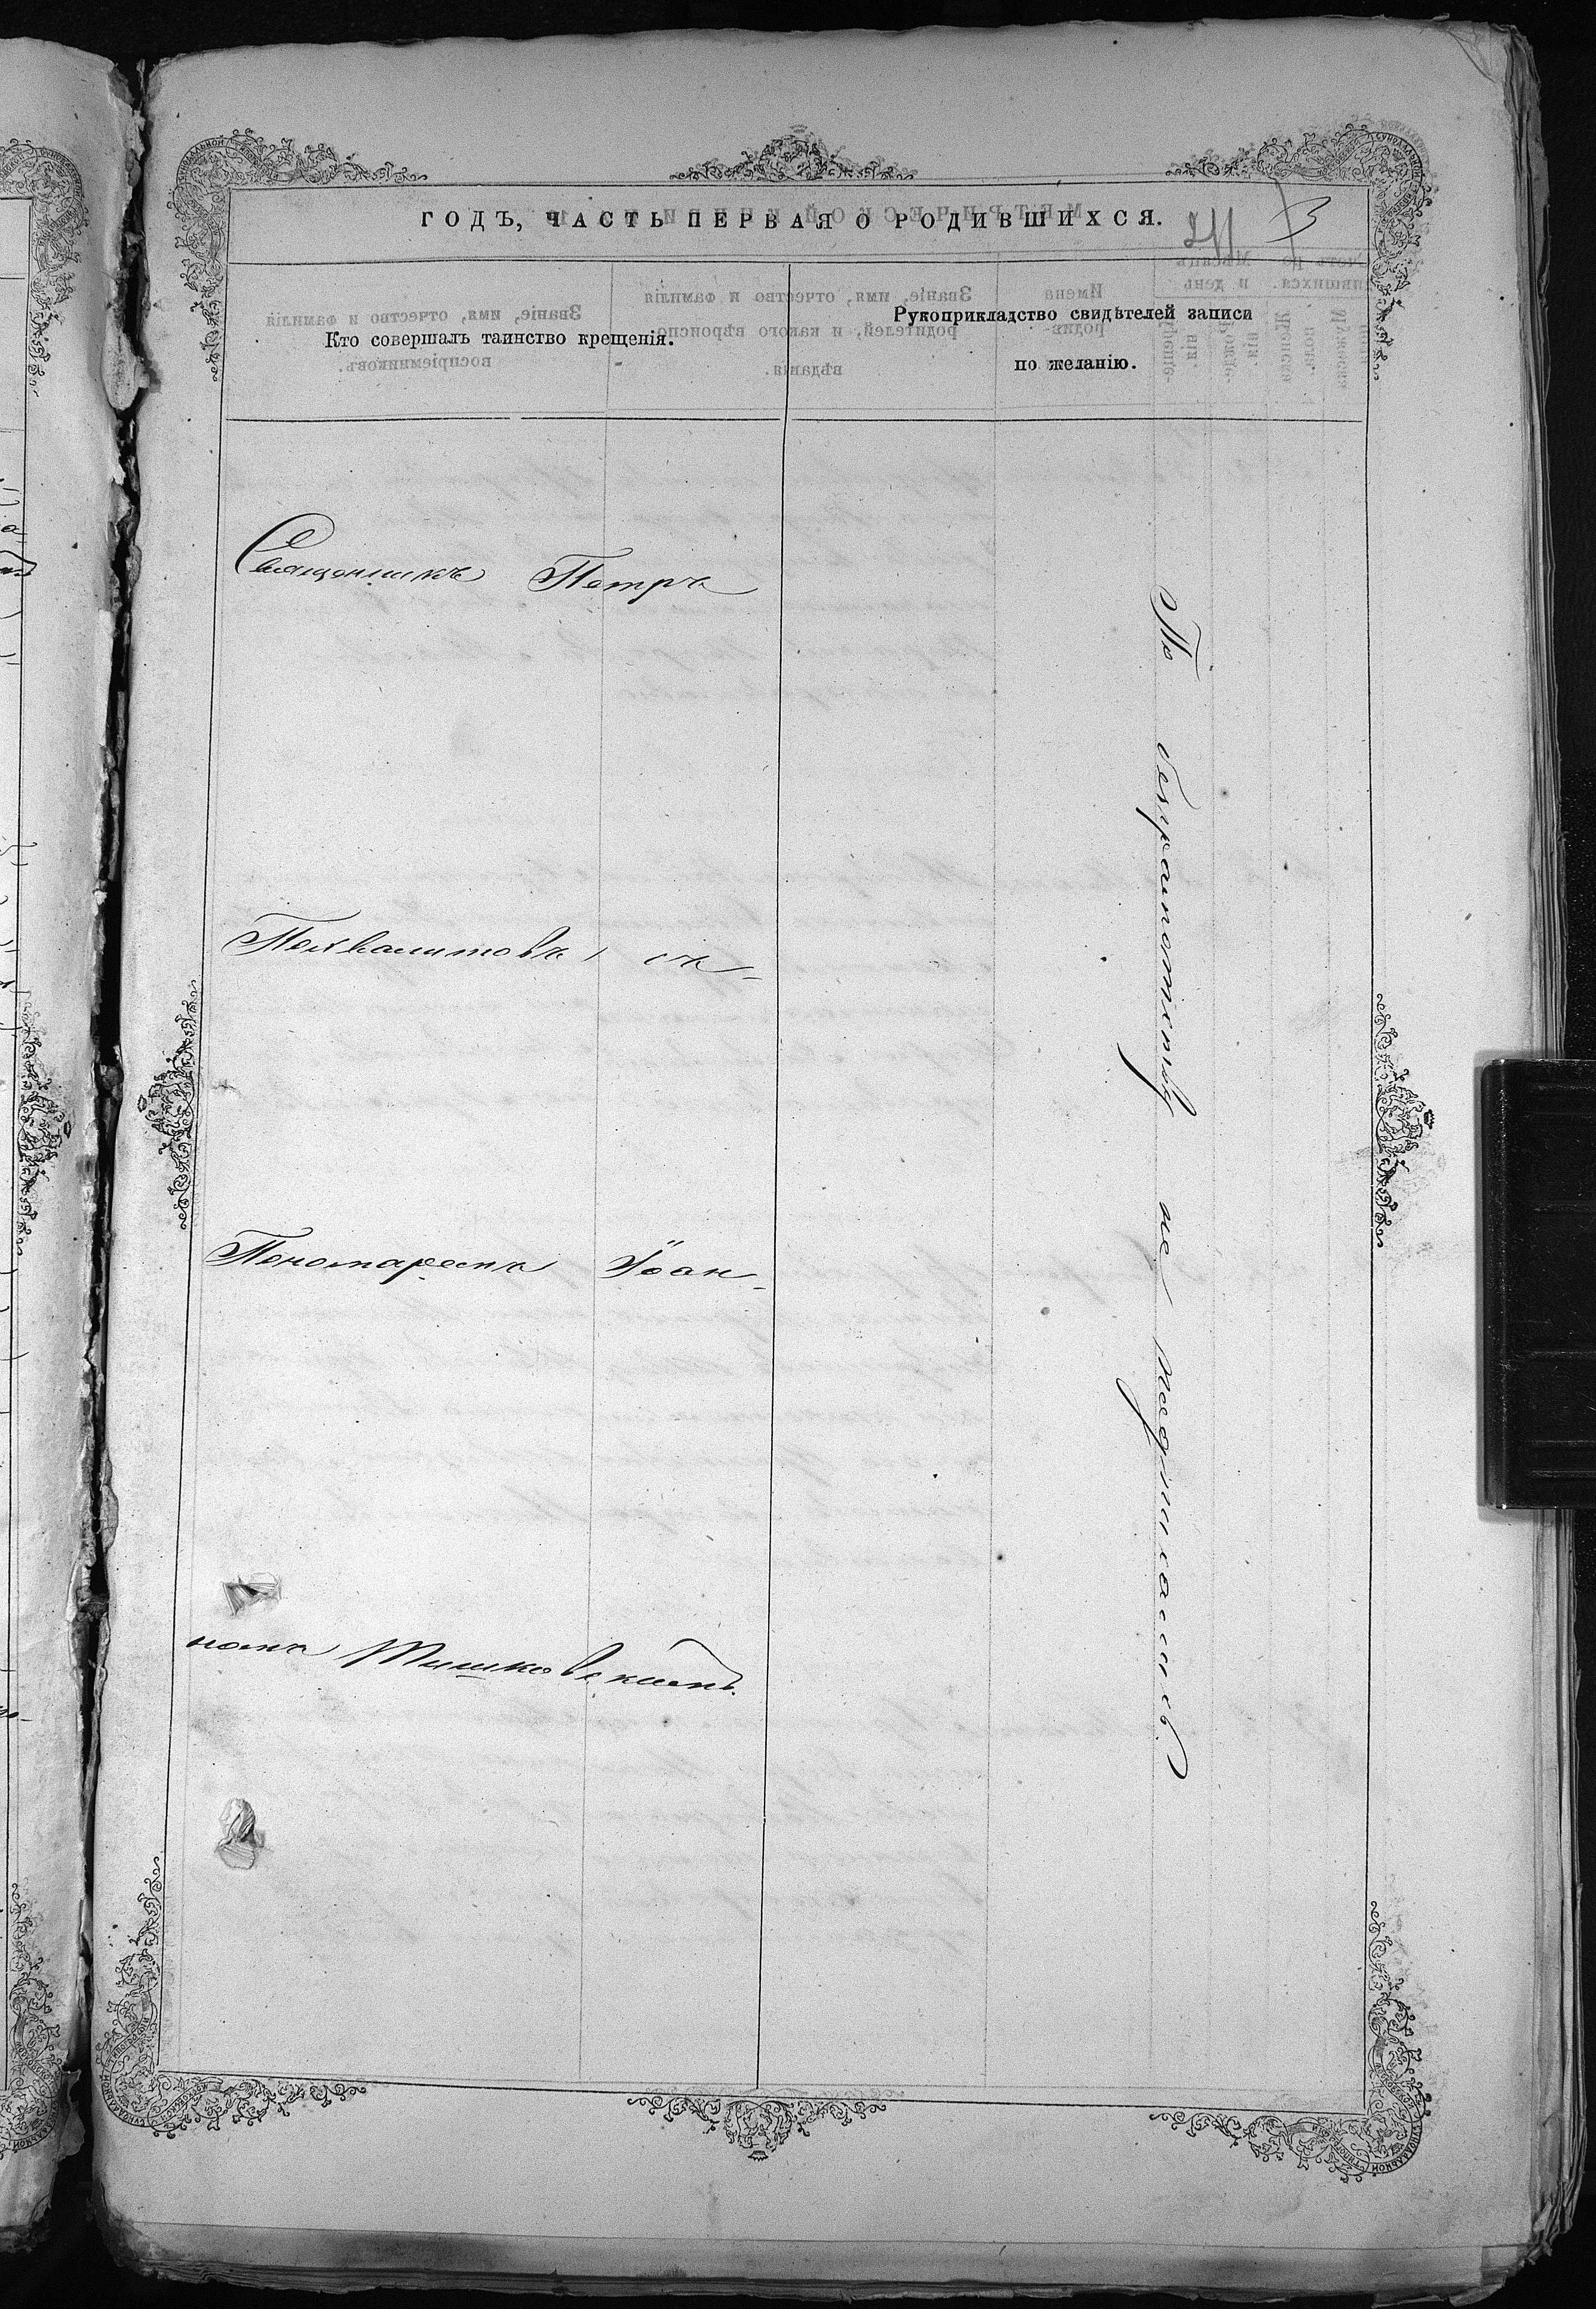 ГОДЪ, ЧАСТЬ ПЕРВАЯ О РОДИВШИХСЯ.
3
Кто совершалъ таинство крещенія.
Рукоприкладство свидѣтелей записи
по желанію.
Священникъ Петръ
Похвалитовъ съ
Пономаремъ Іоан-
номъ Тишковскимъ.
По безграмотству не подписались